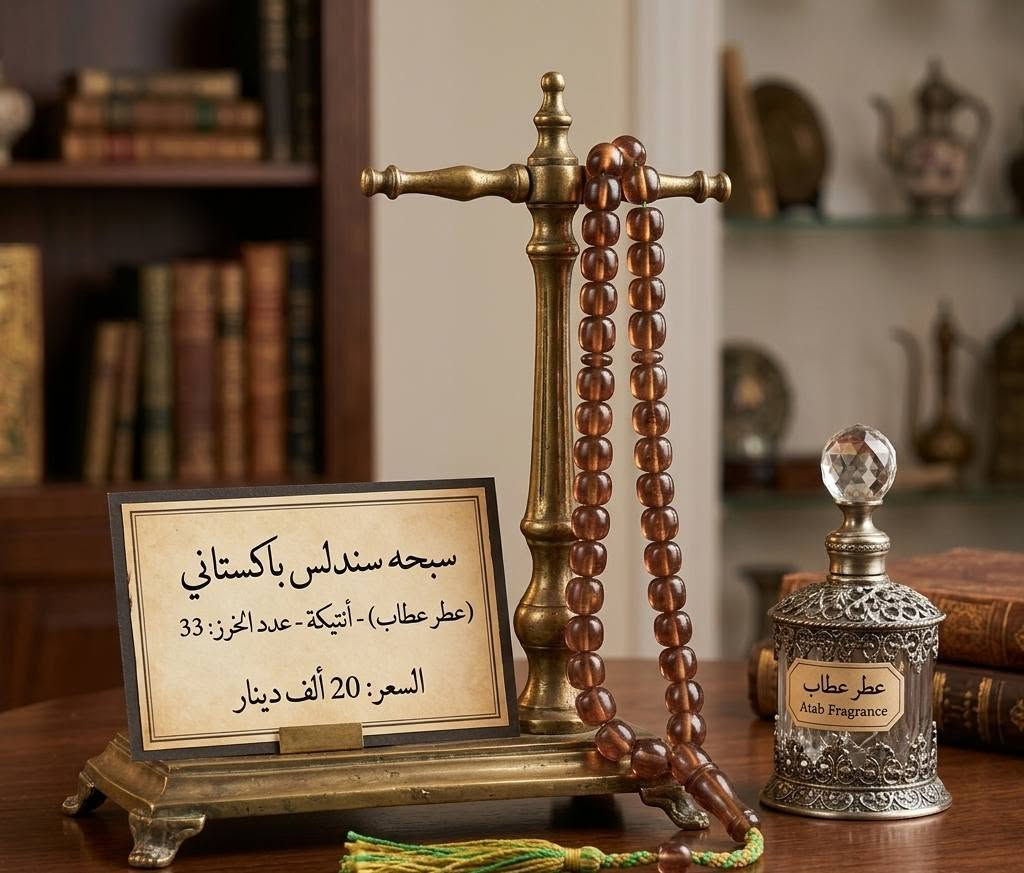 سبحه سندلس باكستاني
(عطر عطاب) - أنتيكة - عدد الخرز: 33
السعر: 20 ألف دينار
عطر عطاب
Atab Fragrance